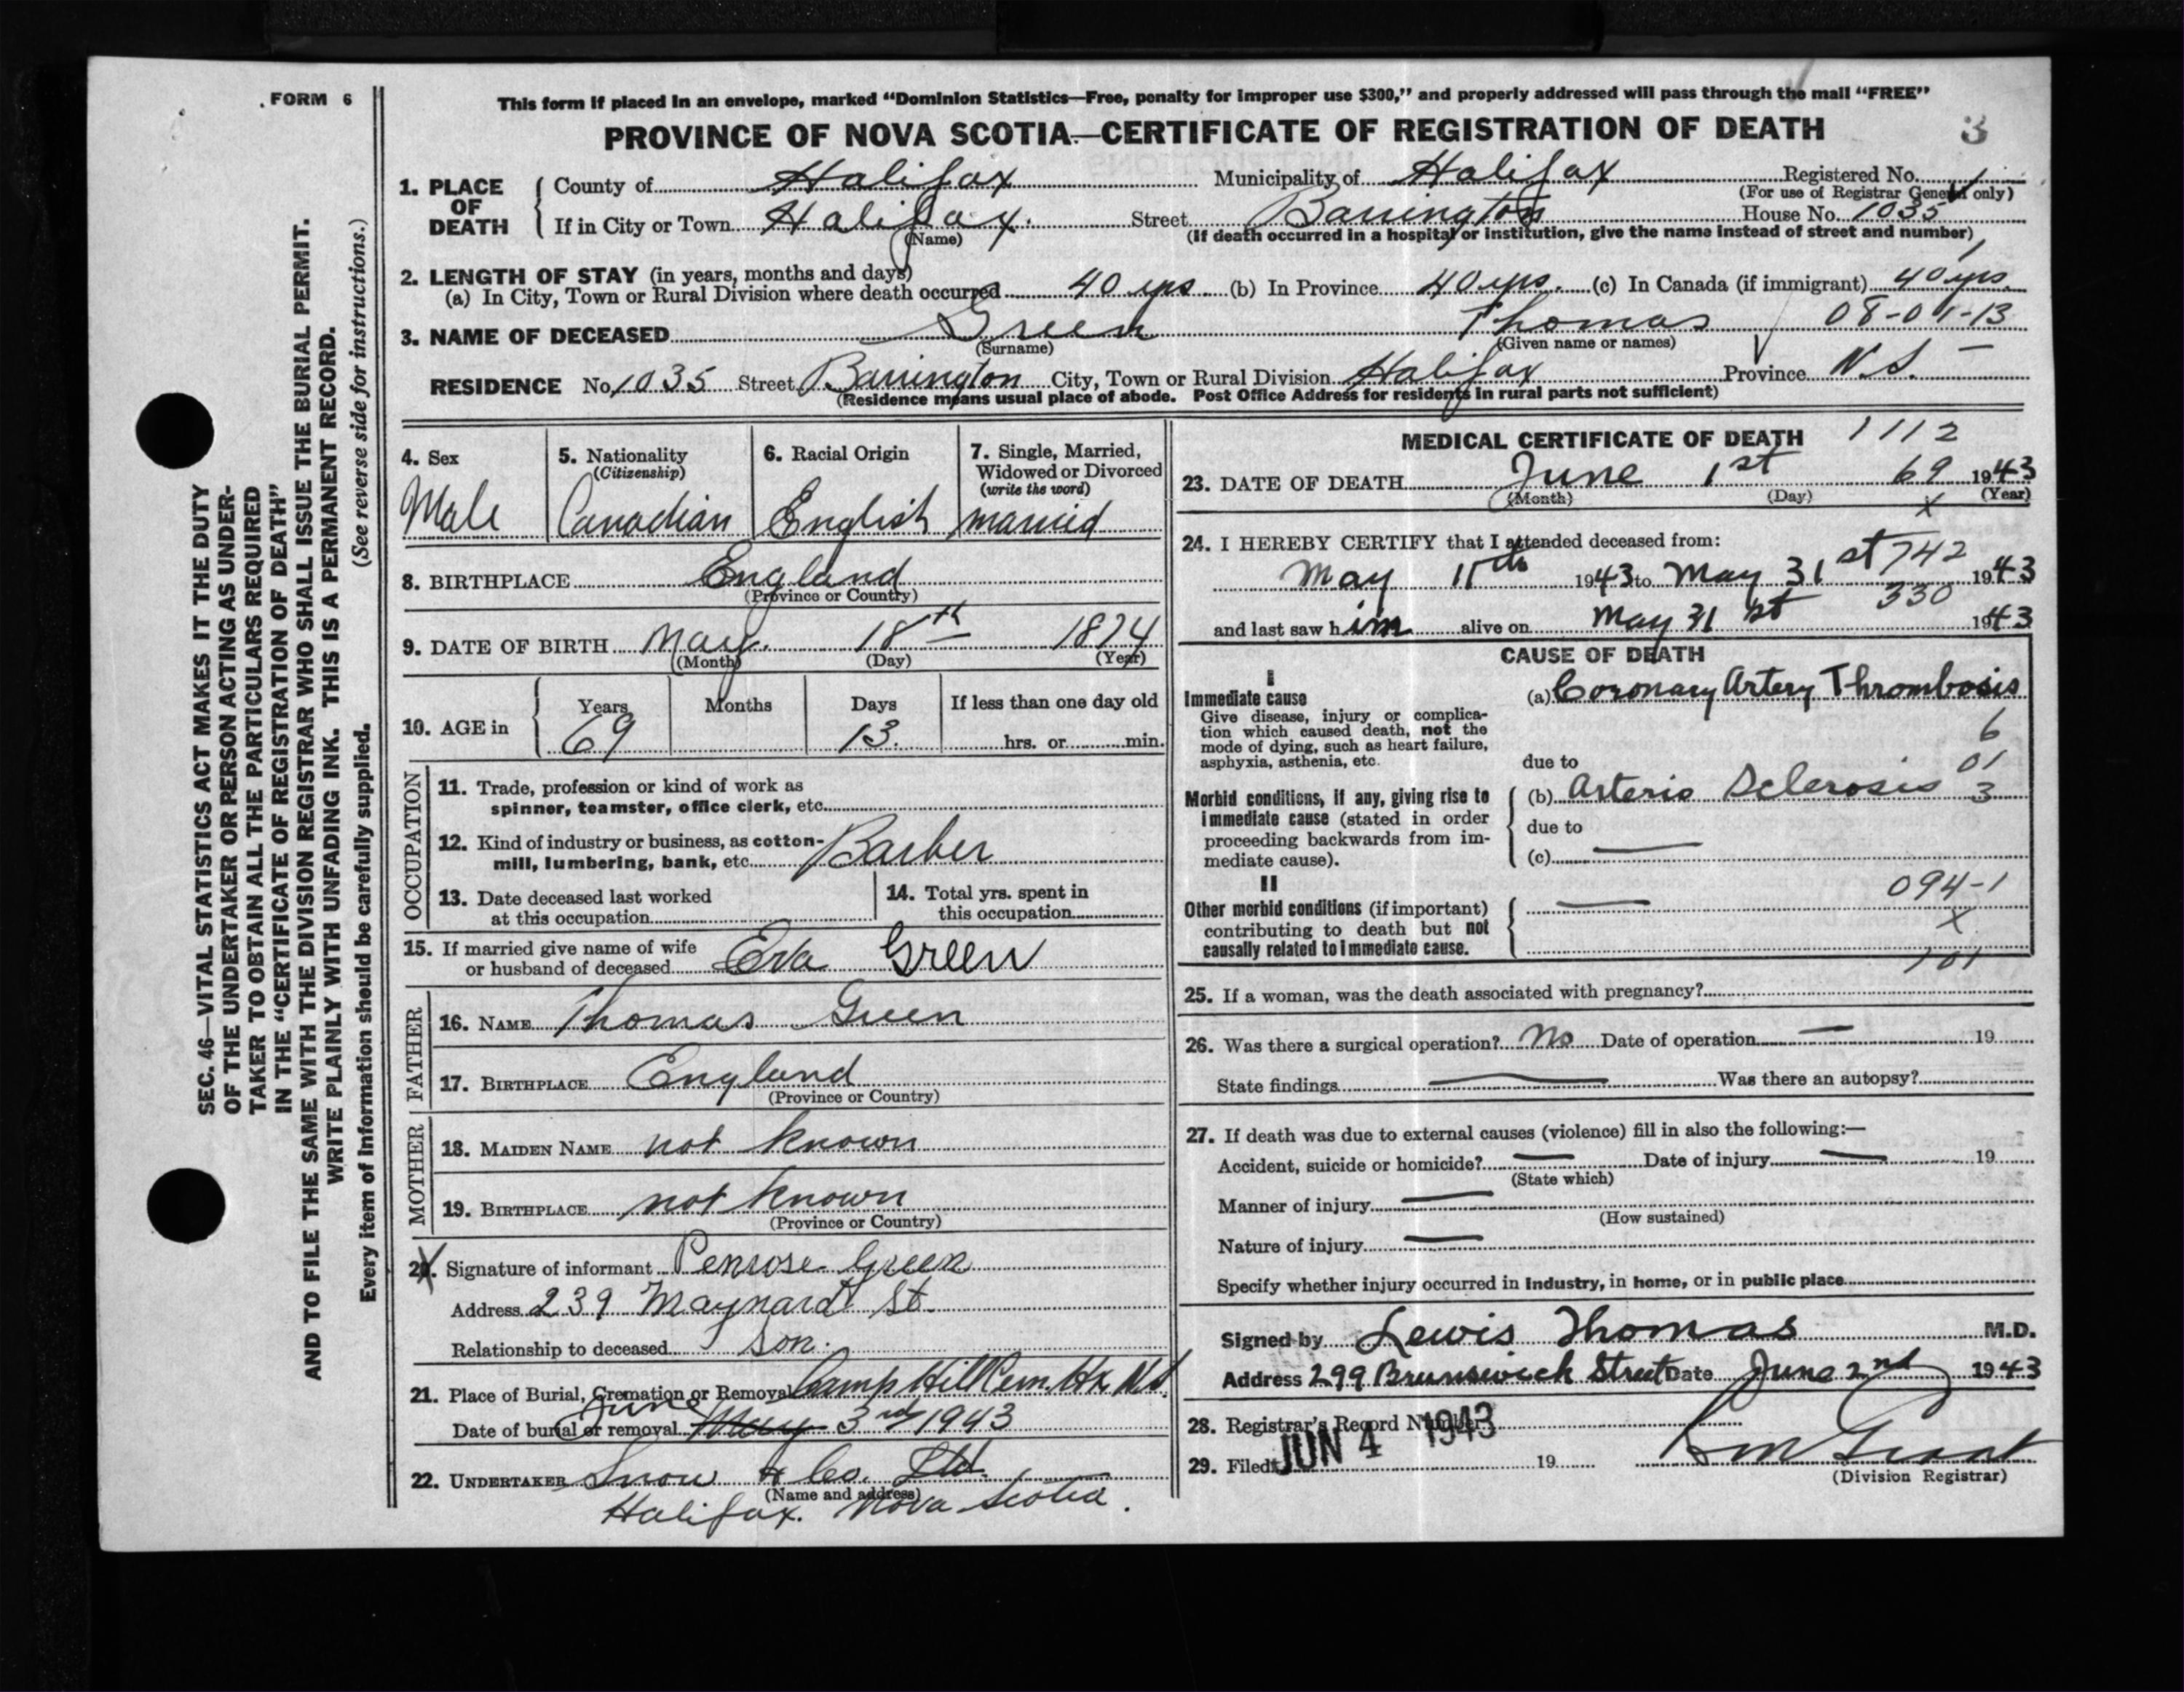 FORM 6
This form if placed in an envelope, marked “Dominion Statistics—Free, penalty for improper use $300,” and properly addressed will pass through the mail “FREE”
PROVINCE OF NOVA SCOTIA—CERTIFICATE OF REGISTRATION OF DEATH
3
1. PLACE OF DEATH
County of Halifax Municipality of Halifax Registered No.
(For use of Registrar General only)
If in City or Town Halifax. Street Barrington House No. 1035
(Name) (If death occurred in a hospital or institution, give the name instead of street and number)
2. LENGTH OF STAY (in years, months and days)
(a) In City, Town or Rural Division where death occurred 40 yrs (b) In Province 40 yrs. (c) In Canada (if immigrant) 40 yrs.
3. NAME OF DECEASED Green Thomas 08-01-13
(Surname) (Given name or names)
RESIDENCE No. 1035 Street Barrington City, Town or Rural Division Halifax Province N.S. —
(Residence means usual place of abode. Post Office Address for residents in rural parts not sufficient)
SEC. 46—VITAL STATISTICS ACT MAKES IT THE DUTY
OF THE UNDERTAKER OR PERSON ACTING AS UNDER-
TAKER TO OBTAIN ALL THE PARTICULARS REQUIRED
IN THE “CERTIFICATE OF REGISTRATION OF DEATH”
AND TO FILE THE SAME WITH THE DIVISION REGISTRAR WHO SHALL ISSUE THE BURIAL PERMIT.
WRITE PLAINLY WITH UNFADING INK. THIS IS A PERMANENT RECORD.
Every item of information should be carefully supplied. (See reverse side for instructions.)
4. Sex
Male
5. Nationality
(Citizenship)
Canadian
6. Racial Origin
English
7. Single, Married,
Widowed or Divorced
(write the word)
married
8. BIRTHPLACE England
(Province or Country)
9. DATE OF BIRTH May. 18th 1874
(Month) (Day) (Year)
10. AGE in
Years Months Days If less than one day old
69 13. hrs. or min.
OCCUPATION
11. Trade, profession or kind of work as
spinner, teamster, office clerk, etc.
12. Kind of industry or business, as cotton-
mill, lumbering, bank, etc. Barber
13. Date deceased last worked
at this occupation
14. Total yrs. spent in
this occupation
15. If married give name of wife
or husband of deceased Eva Green
FATHER
16. NAME Thomas Green
17. BIRTHPLACE England
(Province or Country)
MOTHER
18. MAIDEN NAME not known
19. BIRTHPLACE not known
(Province or Country)
20. Signature of informant Penrose Green
Address 239 Maynard St.
Relationship to deceased Son.
21. Place of Burial, Cremation or Removal Camp Hill Cem. Hx N.S.
June
Date of burial or removal May 3rd 1943
22. UNDERTAKER Snow & Co. Ltd.
(Name and address)
Halifax. Nova Scotia.
MEDICAL CERTIFICATE OF DEATH 1112
23. DATE OF DEATH June 1st 69 1943
(Month) (Day) (Year)
X
24. I HEREBY CERTIFY that I attended deceased from:
742
May 11th 1943 to May 31st 1943
330
and last saw him alive on May 31st 1943
CAUSE OF DEATH
I
Immediate cause
Give disease, injury or complica-
tion which caused death, not the
mode of dying, such as heart failure,
asphyxia, asthenia, etc.
(a) Coronary Artery Thrombosis
6
due to 01
Morbid conditions, if any, giving rise to
immediate cause (stated in order
proceeding backwards from im-
mediate cause).
(b) Arterio Sclerosis 3
due to
(c) —
II
Other morbid conditions (if important)
contributing to death but not
causally related to immediate cause.
094-1
—
X
101
25. If a woman, was the death associated with pregnancy?
26. Was there a surgical operation? No Date of operation — 19
State findings — Was there an autopsy?
27. If death was due to external causes (violence) fill in also the following:—
Accident, suicide or homicide? — Date of injury — 19
(State which)
Manner of injury —
(How sustained)
Nature of injury —
Specify whether injury occurred in industry, in home, or in public place
Signed by Lewis Thomas M.D.
Address 299 Brunswick Street Date June 2nd 1943
28. Registrar's Record Number
29. Filed JUN 4 1943 19
(Division Registrar)